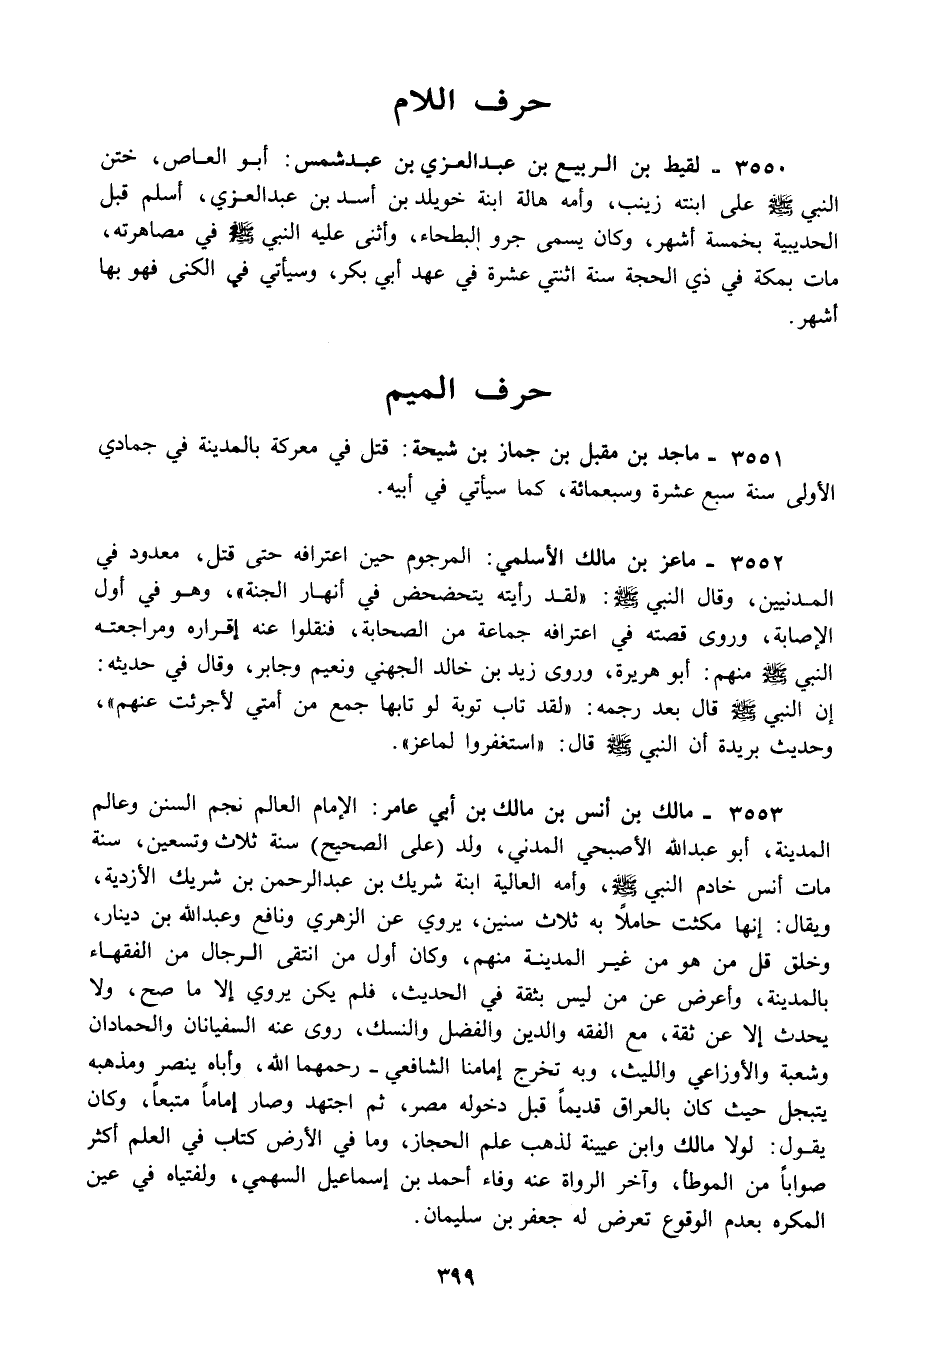 حرف اللام
٣٥٥٠ - لقيط بن الربيع بن عبدالعزي بن عبدشمس: أبو العاص، ختن
النبي ﷺ على ابنته زينب، وأمه هالة ابنة خويلد بن أسد بن عبدالعزي، أسلم قبل
الحديبية بخمسة أشهر، وكان يسمى جرو البطحاء، وأثنى عليه النبي ﷺ في مصاهرته،
مات بمكة في ذي الحجة سنة اثنتي عشرة في عهد أبي بكر، وسيأتي في الكنى فهو بها
أشهر.
حرف الميم
٣٥٥١ - ماجد بن مقبل بن جماز بن شيحة: قتل في معركة بالمدينة في جمادي
الأولى سنة سبع عشرة وسبعمائة، كما سيأتي في أبيه.
٣٥٥٢ - ماعز بن مالك الأسلمي: المرجوم حين اعترافه حتى قتل، معدود في
المدنيين، وقال النبي ﷺ: «لقد رأيته يتحضحض في أنهار الجنة»، وهو في أول
الإصابة، وروى قصته في اعترافه جماعة من الصحابة، فنقلوا عنه إقراره ومراجعته
النبي ﷺ منهم: أبو هريرة، وروى زيد بن خالد الجهني ونعيم وجابر، وقال في حديثه:
إن النبي ﷺ قال بعد رجمه: «لقد تاب توبة لو تابها جمع من أمتي لأجرئت عنهم»،
وحديث بريدة أن النبي ﷺ قال: «استغفروا لماعز».
٣٥٥٣ - مالك بن أنس بن مالك بن أبي عامر: الإمام العالم نجم السنن وعالم
المدينة، أبو عبدالله الأصبحي المدني، ولد (على الصحيح) سنة ثلاث وتسعين، سنة
مات أنس خادم النبي ﷺ، وأمه العالية ابنة شريك بن عبدالرحمن بن شريك الأزدية،
ويقال: إنها مكثت حاملاً به ثلاث سنين، يروي عن الزهري ونافع وعبدالله بن دينار،
وخلق قل من هو من غير المدينة منهم، وكان أول من انتقى الرجال من الفقهاء
بالمدينة، وأعرض عن من ليس بثقة في الحديث، فلم يكن يروي إلا ما صح، ولا
يحدث إلا عن ثقة، مع الفقه والدين والفضل والنسك، روى عنه السفيانان والحمادان
وشعبة والأوزاعي والليث، وبه تخرج إمامنا الشافعي - رحمهما الله، وأباه ينصر ومذهبه
يتبجل حيث كان بالعراق قديماً قبل دخوله مصر، ثم اجتهد وصار إماماً متبعاً، وكان
يقول: لولا مالك وابن عيينة لذهب علم الحجاز، وما في الأرض كتاب في العلم أكثر
صواباً من الموطأ، وآخر الرواة عنه وفاء أحمد بن إسماعيل السهمي، ولفتياه في عين
المكره بعدم الوقوع تعرض له جعفر بن سليمان.
٣٩٩